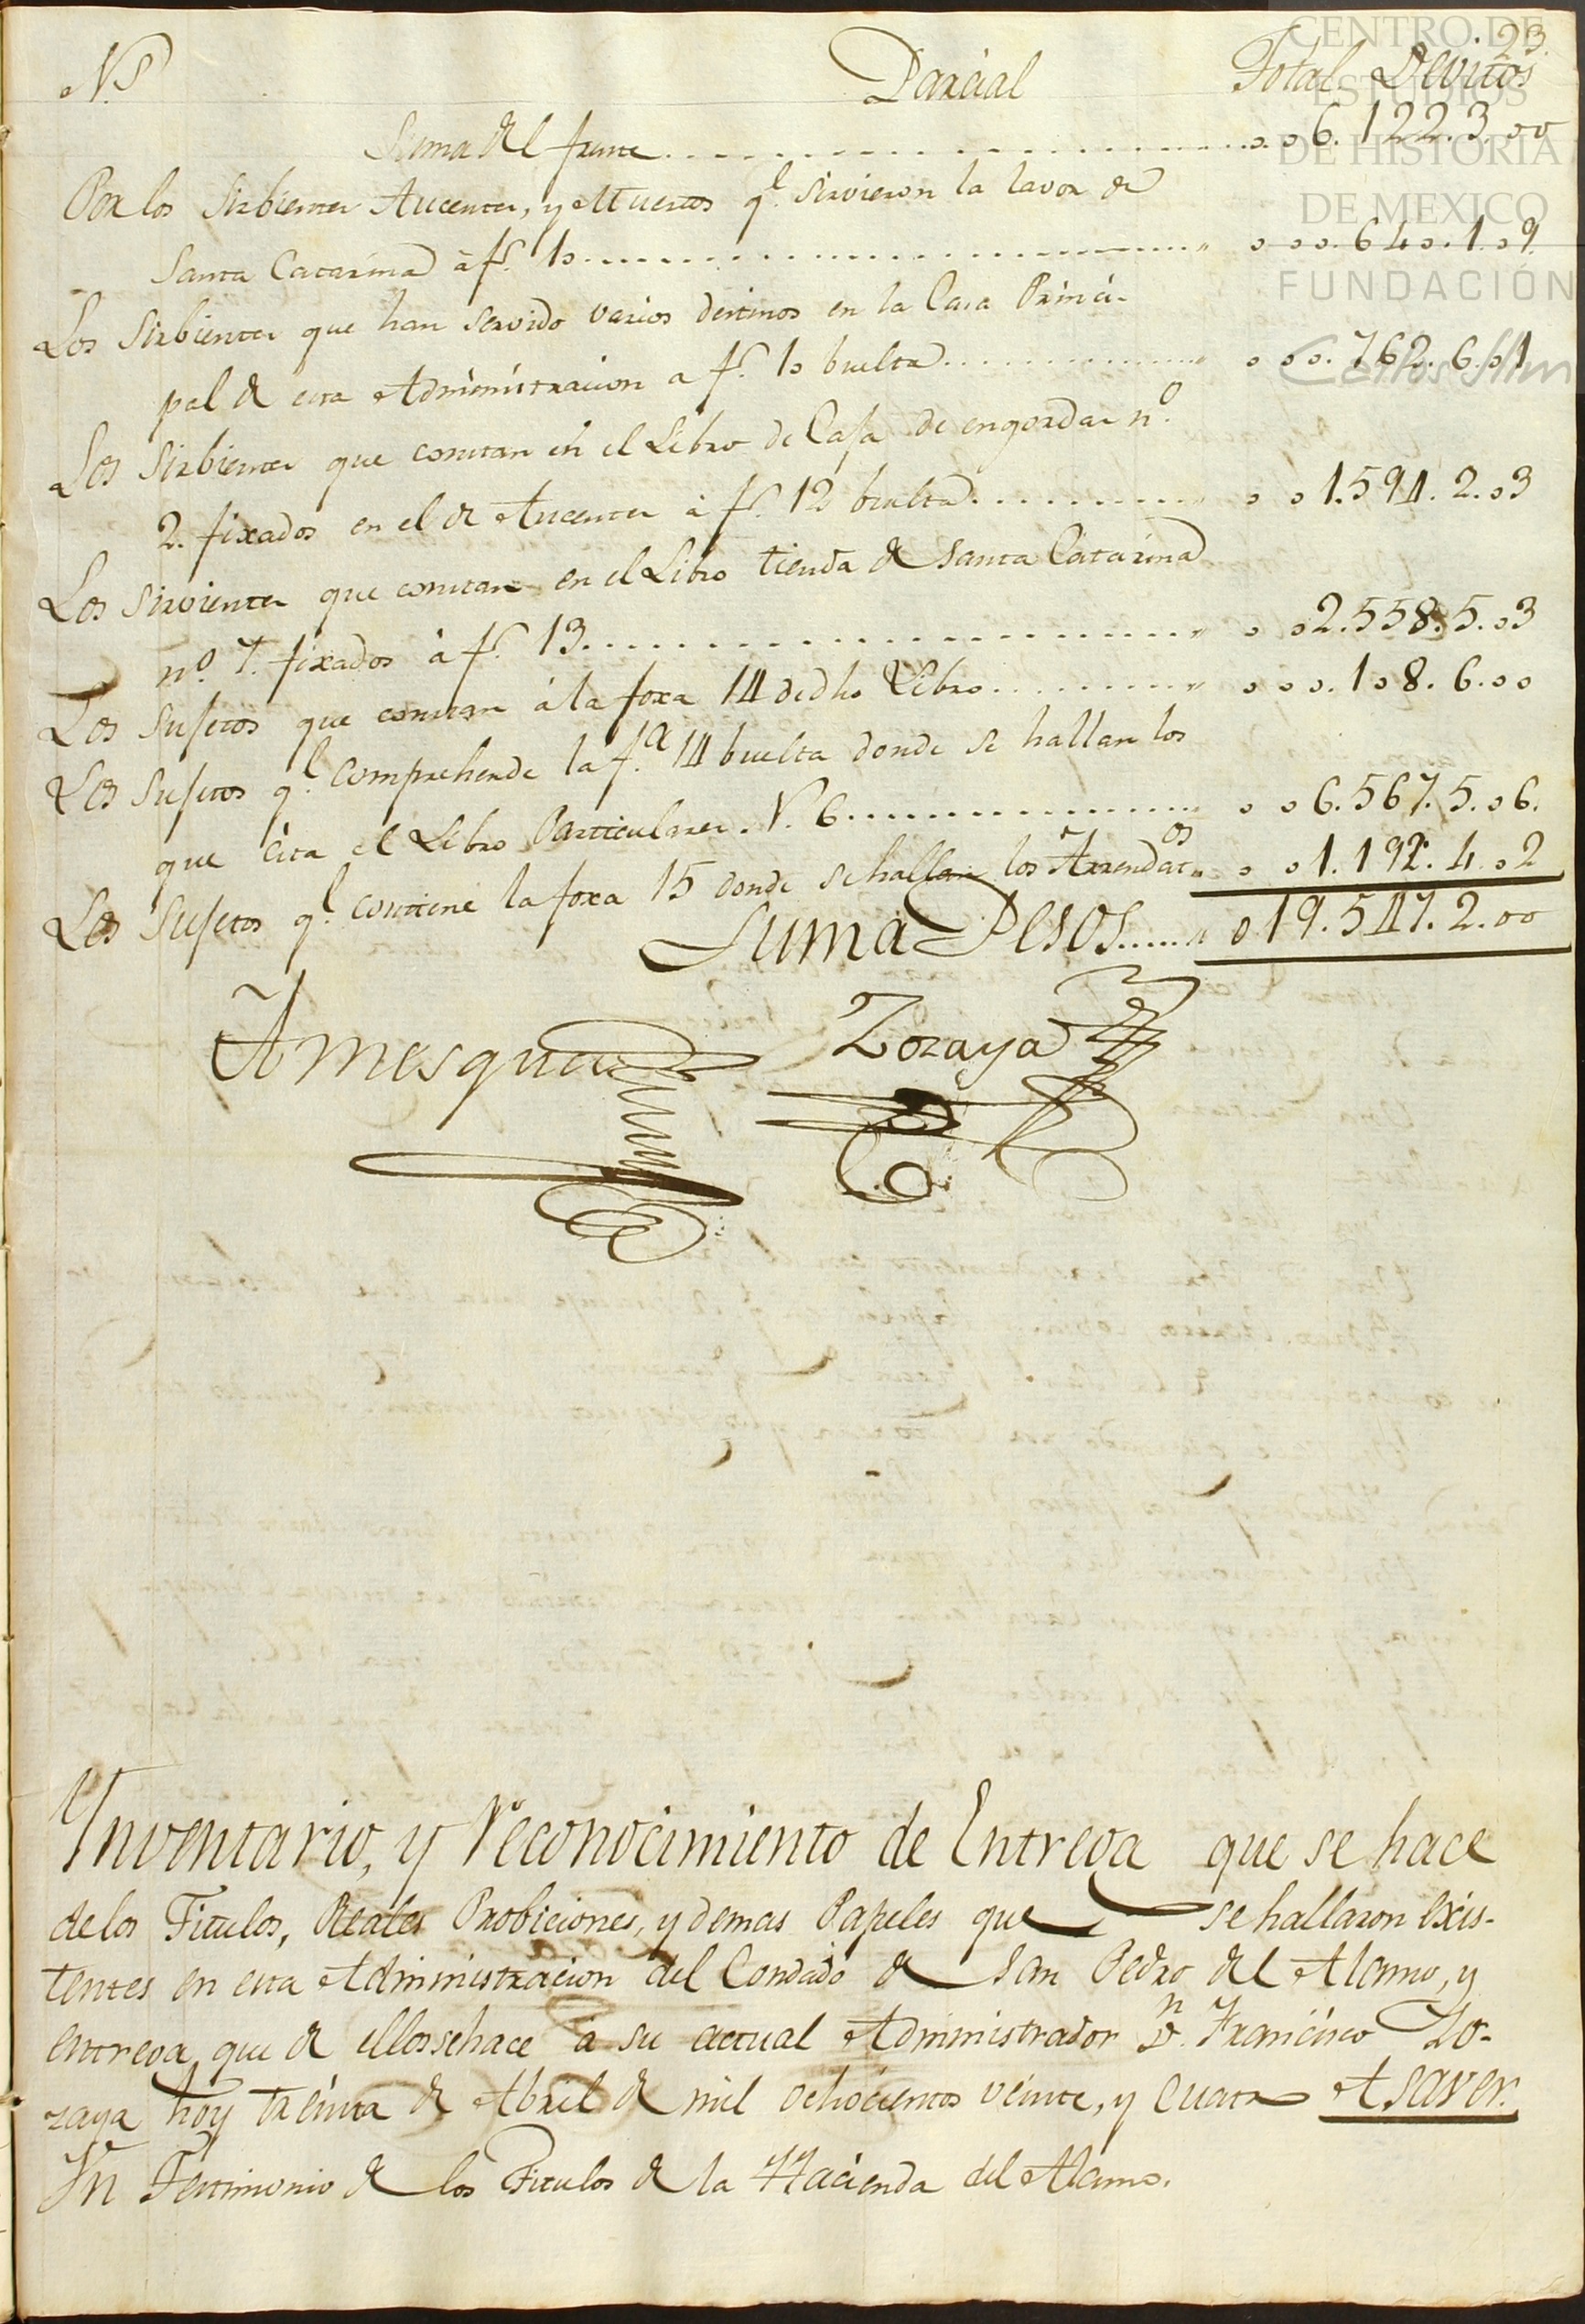 23.
N.s Parcial Total Devitos
Suma del frente ........ 6.122.3.00
Por los Sirbientes Aucentes, y Muertos q.e sirvieron la lavor de
Santa Catarina à f.s 10 ........ 000.640.1.09
Los Sirbientes que han servido varios destinos en la Casa Princi-
pal de esta Administracion a f.s 10 buelta ........ 000.762.6.01
Los Sirbientes que constan en el Libro de Casa de engordar n.o
2. fixados en el de Aucentes à f.s 12 buelta ........ 001.594.2.03
Los Sirvientes que constan en el Libro tienda de Santa Catarina
n.o 7. fixados à f.s 13 ........ 002.558.5.03
Los Sujetos que constan á la foxa 14 de dho Libro ........ 000.108.6.00
Los Sujetos q.e comprehende la f.a 14 buelta donde se hallan los
que cita el Libro Particulares. N. 6 ........ 006.567.5.06.
Los Sujetos q.e contiene la foxa 15 donde se hallan los Arrendat.os 001.192.4.02
Suma Pesos ...... 019.547.2.00
Amesqua Zozaya
Ynventario, y reconocimiento de Entrega que se hace
de los Titulos, Reales Probiciones, y demas Papeles que se hallaron exis-
tentes en esta Administracion del Condado de San Pedro del Alamo, y
entrega que de ellos se hace à su actual Administrador D.n Francisco Zo-
zaya hoy treinta de Abril de mil ochocientos veinte, y cuatro A saver.
Un Testimonio de los Titulos de la Hacienda del Alamo.
CENTRO DE
ESTUDIOS
DE HISTORIA
DE MEXICO
FUNDACIÓN
Carlos Slim